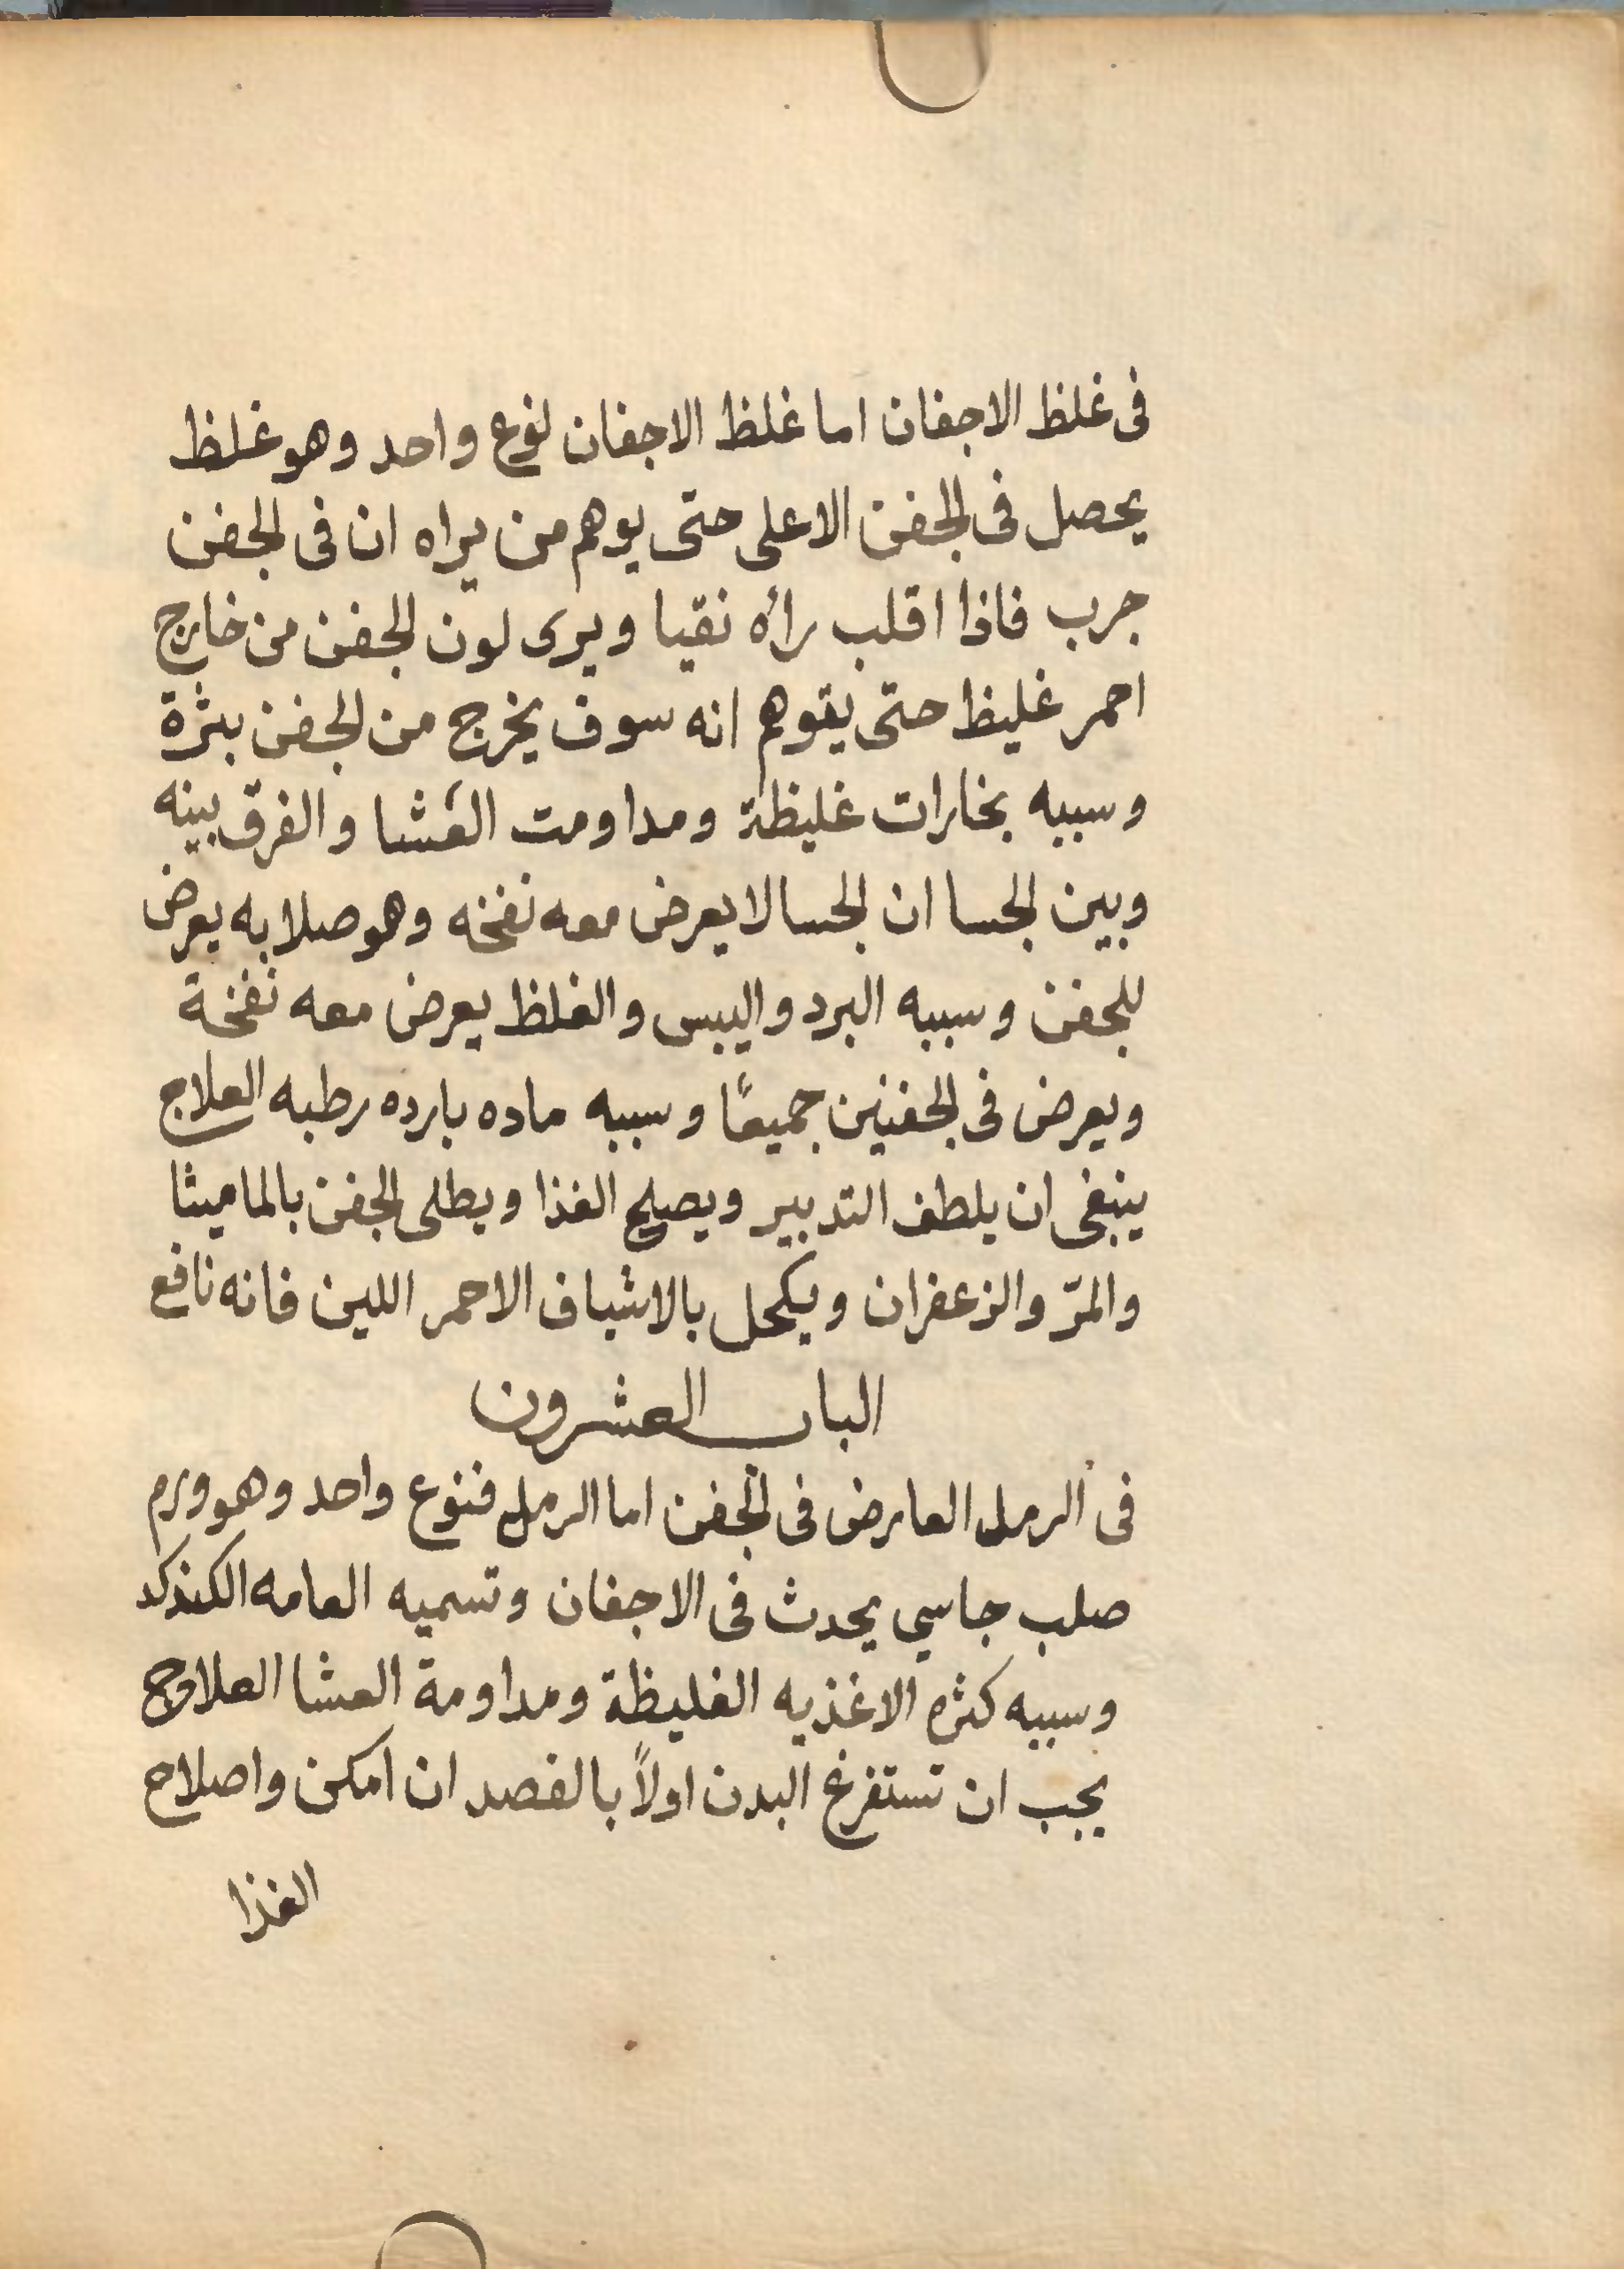 فى غلظ الاجفان اما غلظ الاجفان لنوع واحد وهو غلظ
يحصل فى الجفن الاعلى حتى يوهم من يراه ان فى الجفن
جرب فاذا اقلب رأه نقيا ويرى لون الجفن من خارج
احمر غليظ حتى يتوهم انه سوف يخرج من الجفن بثرة
وسببه بخارات غليظة ومداومت العَشا والفرق بينه
وبين الجسا ان الجسا لا يعرض معه نفخه وهو صلابه يعرض
للجفن وسببه البرد واليبس والغلظ يعرض معه نفخة
ويعرض فى الجفنين جميعًا وسببه ماده بارده رطبه العلاج
ينبغى ان يلطف التدبير ويصلح الغذا ويطلى الجفن بالماميثا
والمرّ والزعفران ويكحل بالاشياف الاحمر اللين فانه نافع
الباب العشرون
فى الرمل العارض فى الجفن اما الرمل فنوع واحد وهو ورم
صلب جاسي يحدث فى الاجفان وتسميه العامه الكندكد
وسببه كثره الاغذيه الغليظة ومداومة العشا العلاج
يجب ان تستفرغ البدن اولاً بالفصد ان امكن واصلاح
الغذا